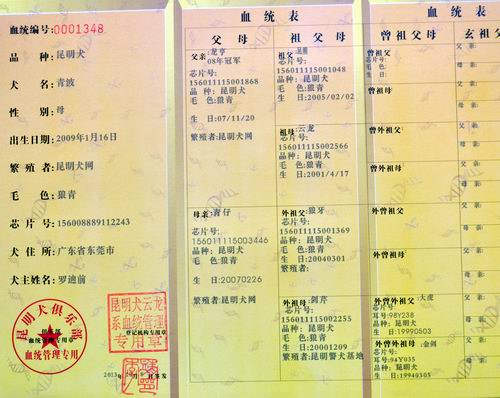 血统编号:0001348
品 种:昆明犬
犬 名:青波
性 别:母
出生日期:2009年1月16日
繁 殖 者:昆明犬网
毛 色:狼青
芯 片 号:156008889112243
犬 住 所:广东省东莞市
犬主姓名:罗迪前
昆明犬俱乐部
血统管理专用章
血统管理专用
昆明犬云龙
系血统管理
专用章
登记机构专用章
血统表
父母
祖父母
父亲:龙亨
08年冠军
芯片号:
156011115001868
品种:昆明犬
毛色:狼青
生 日:07/11/20
繁殖者:昆明犬网
母亲:青仔
芯片号:
156011115003446
品种:昆明犬
毛色:狼青
生 日:20070226
繁殖者:昆明犬网
祖父:
芯片号:
156011115001048
品种:昆明犬
毛色:狼青
生 日:2005/02/02
祖母:云龙
芯片号:
156011115002566
品种:昆明犬
毛色:狼青
生 日:2001/4/17
外祖父:狼牙
芯片号:
156011115001369
品种:昆明犬
毛色:狼青
生 日:20040301
繁殖者:
外祖母:剑芹
芯片号:
156011115002255
品种:昆明犬
毛色:狼青
生 日:20001209
繁殖者:昆明警犬基地
血统表
曾祖父母
玄祖父
曾祖父
芯片号:
毛色:
生 日:
曾祖母
曾外祖父
曾外祖母
曾祖父
曾祖母
曾外祖父:大虎
芯片号:
耳号:98Y238
生 日:19990503
曾外祖母:金剑
芯片号:
耳号:94Y035
生 日:19940305
父亲:
母亲:
父亲:
母亲:
父亲:
母亲:
父亲:
母亲:
父:
母:
父:
母:
父:
母:
父:
母: